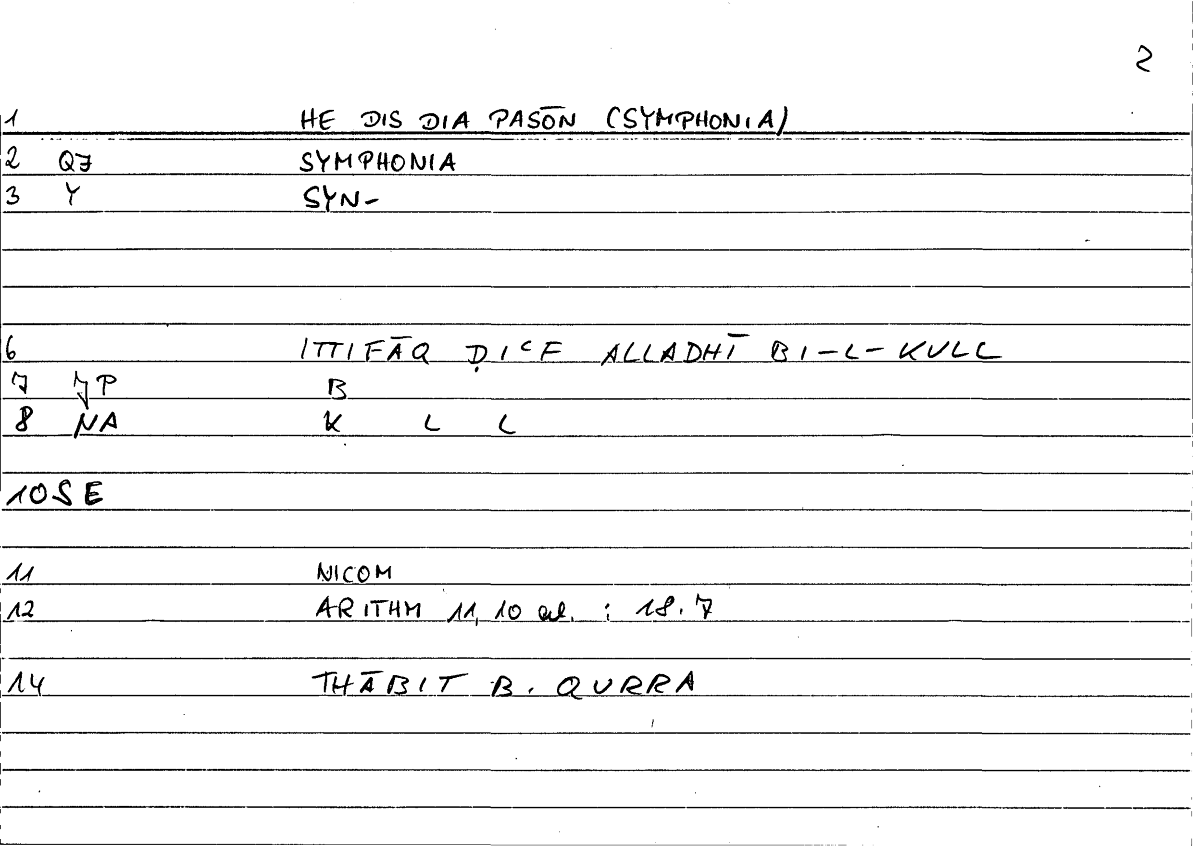 2
1 HE DIS DIA PASŌN (SYMPHONIA)
2 Q7 SYMPHONIA
3 Y SYN-
6 ITTIFĀQ ḌIʿF ALLADHĪ BI-L-KULL
7 JP B
8 NA K L L
10 SE
11 NICOM
12 ARITHM 11, 10 al. : 18.7
14 THĀBIT B. QURRA